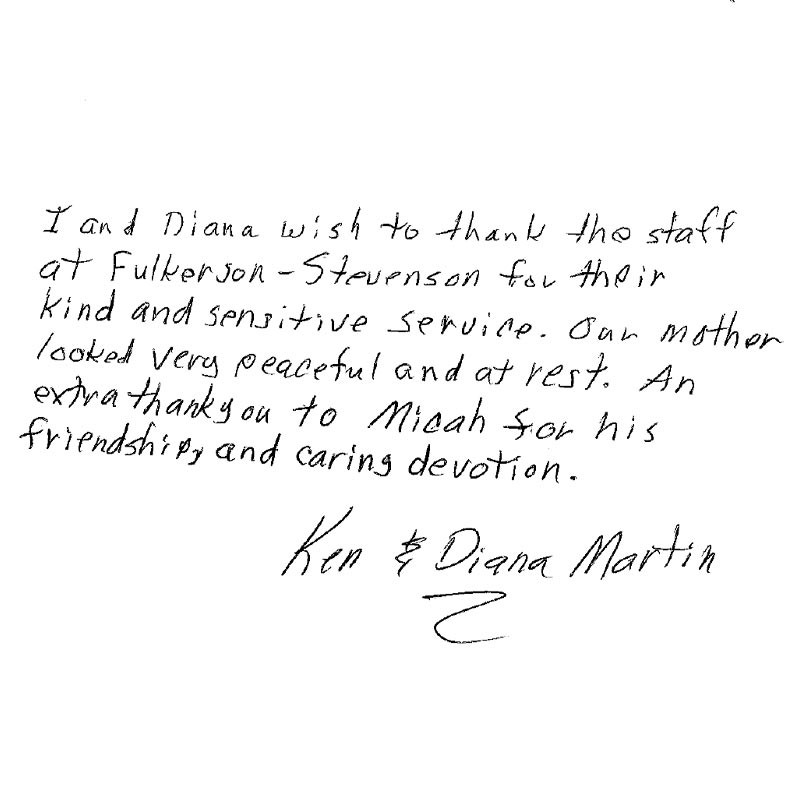 I and Diana wish to thank the staff
at Fulkerson-Stevenson for their
kind and sensitive service. Our mother
looked very peaceful and at rest. An
extra thank you to Micah for his
friendship, and caring devotion.
Ken & Diana Martin